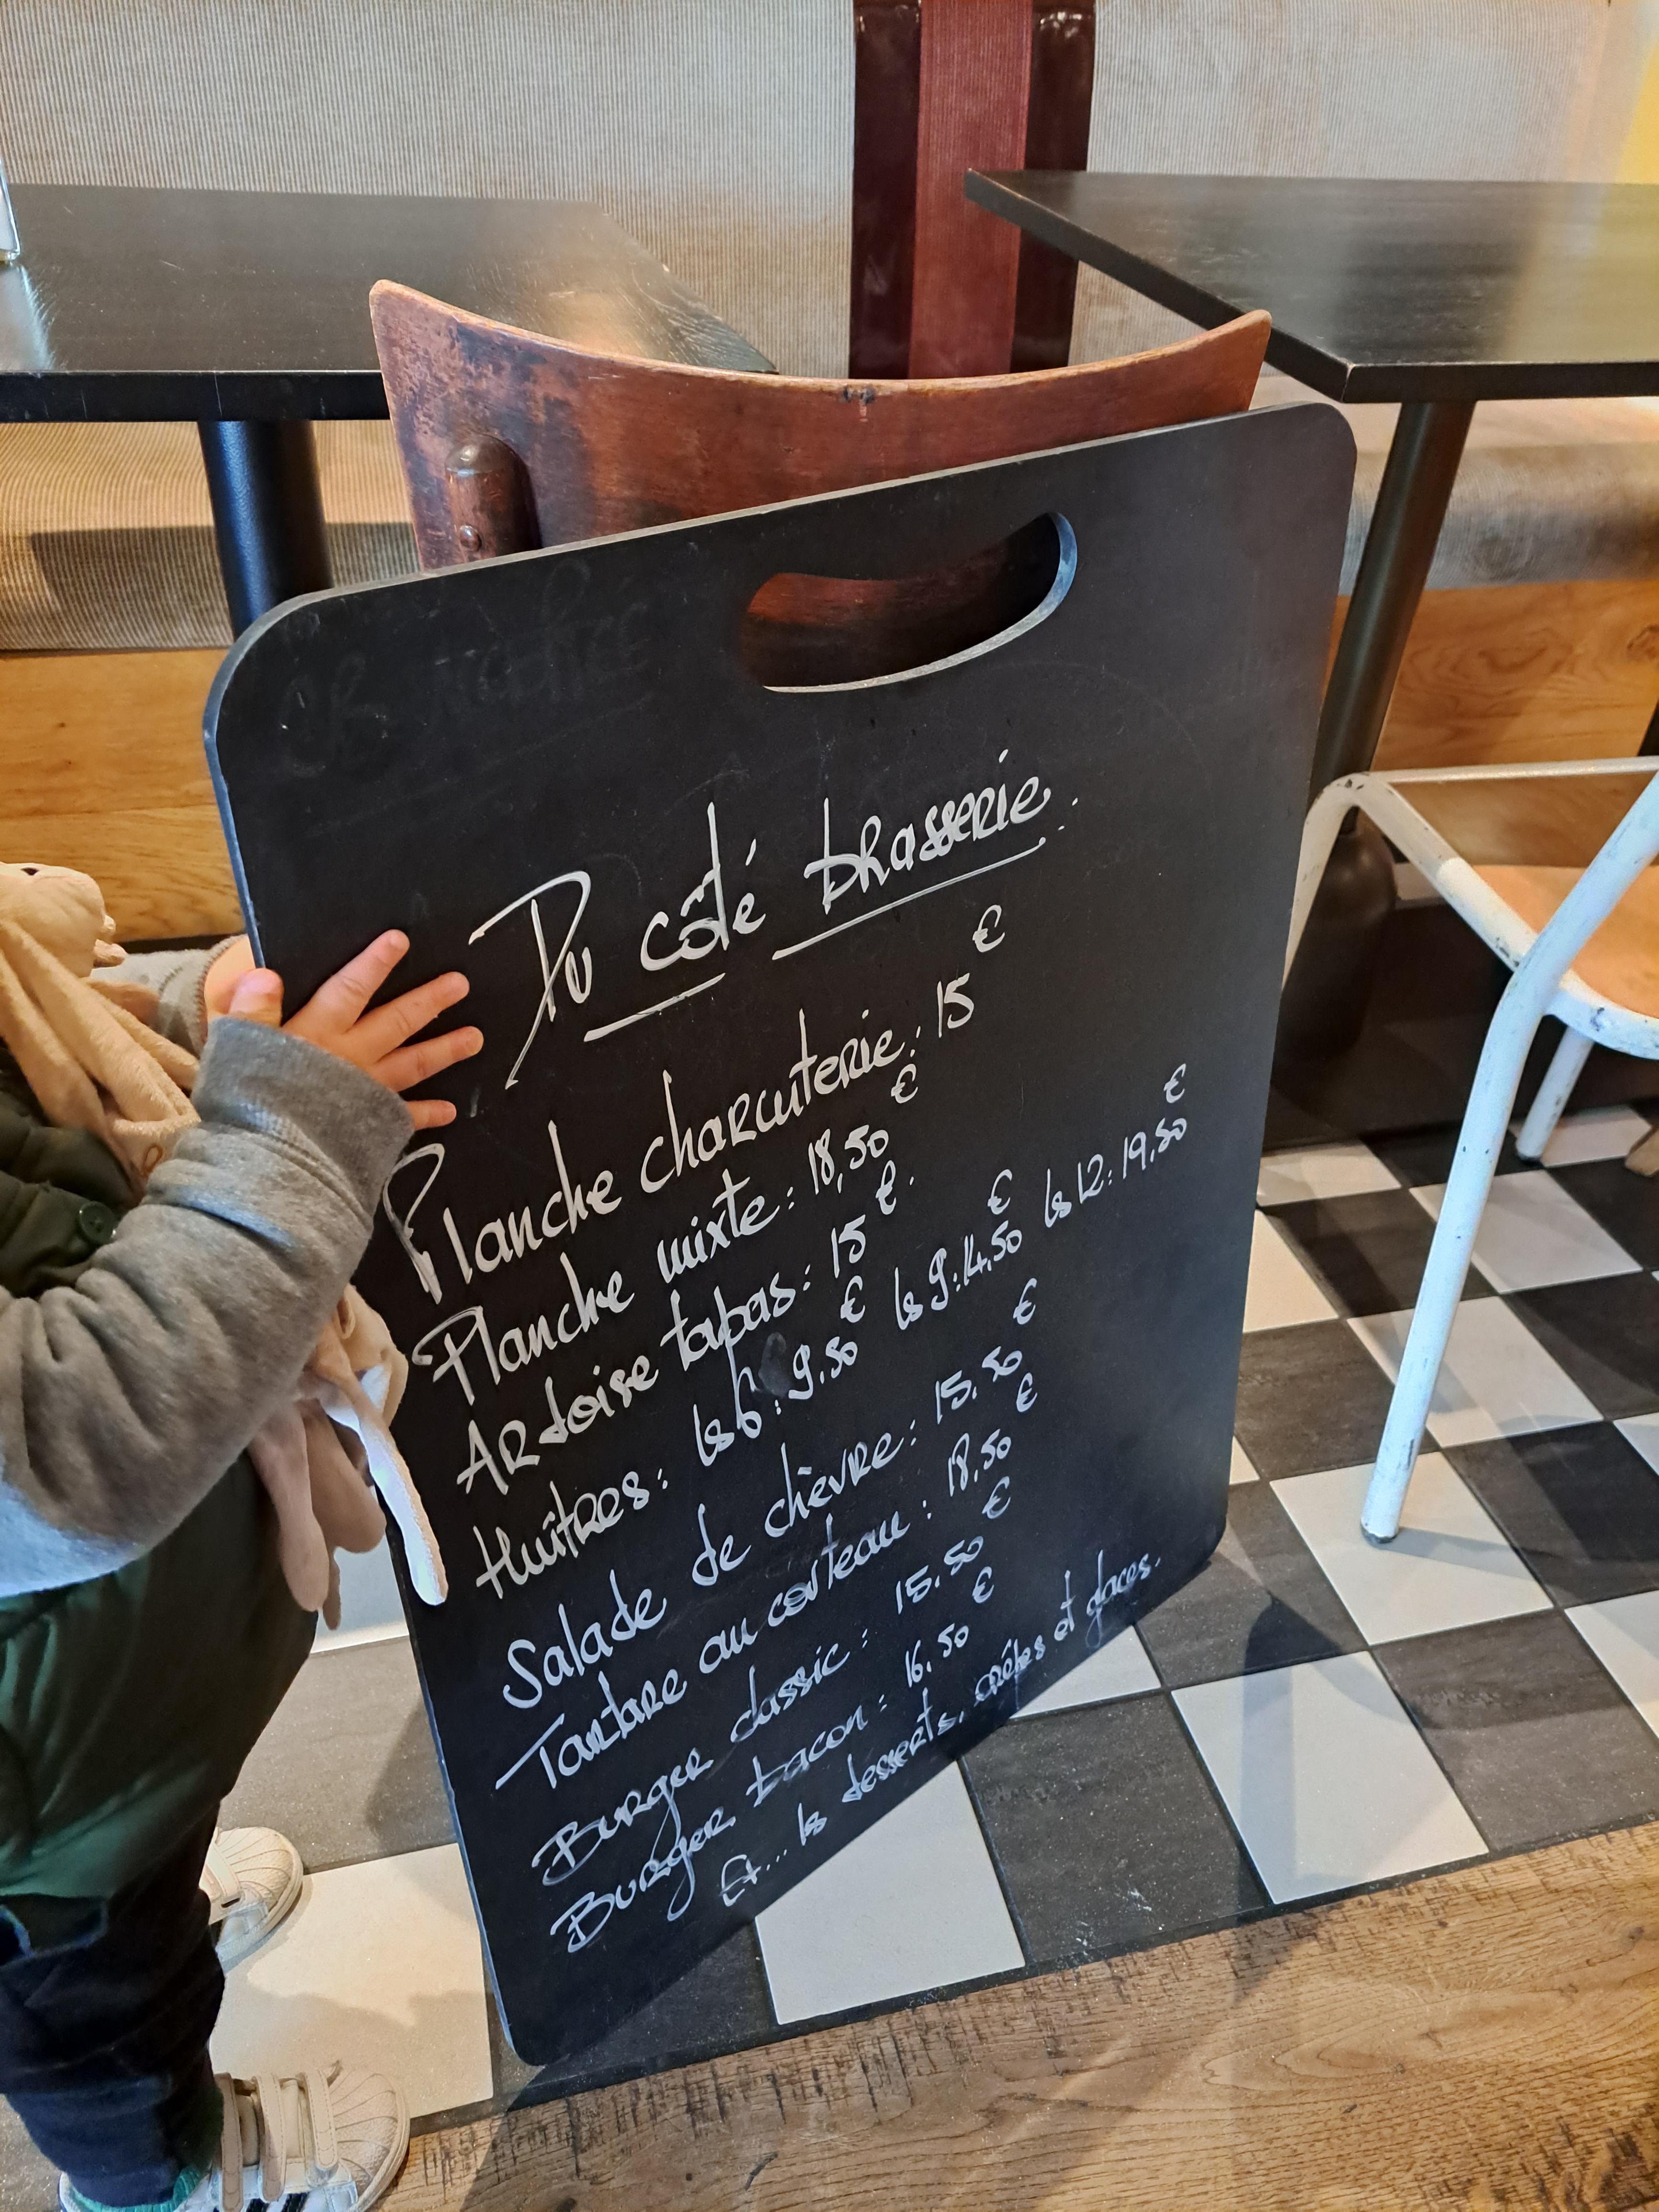 Du côté brasserie.
Planche charcuterie: 15 €
Planche mixte: 18,50 €
ARdoise tapas: 15 €.
Huîtres: les 6: 9.50 € les 9: 14.50 € les 12: 19.50 €
Salade de chèvre: 15.50 €
Tartare au couteau: 18.50 €
Burger classic: 15.50 €
Burger bacon: 16.50 €
Et... les desserts, crêpes et glaces.